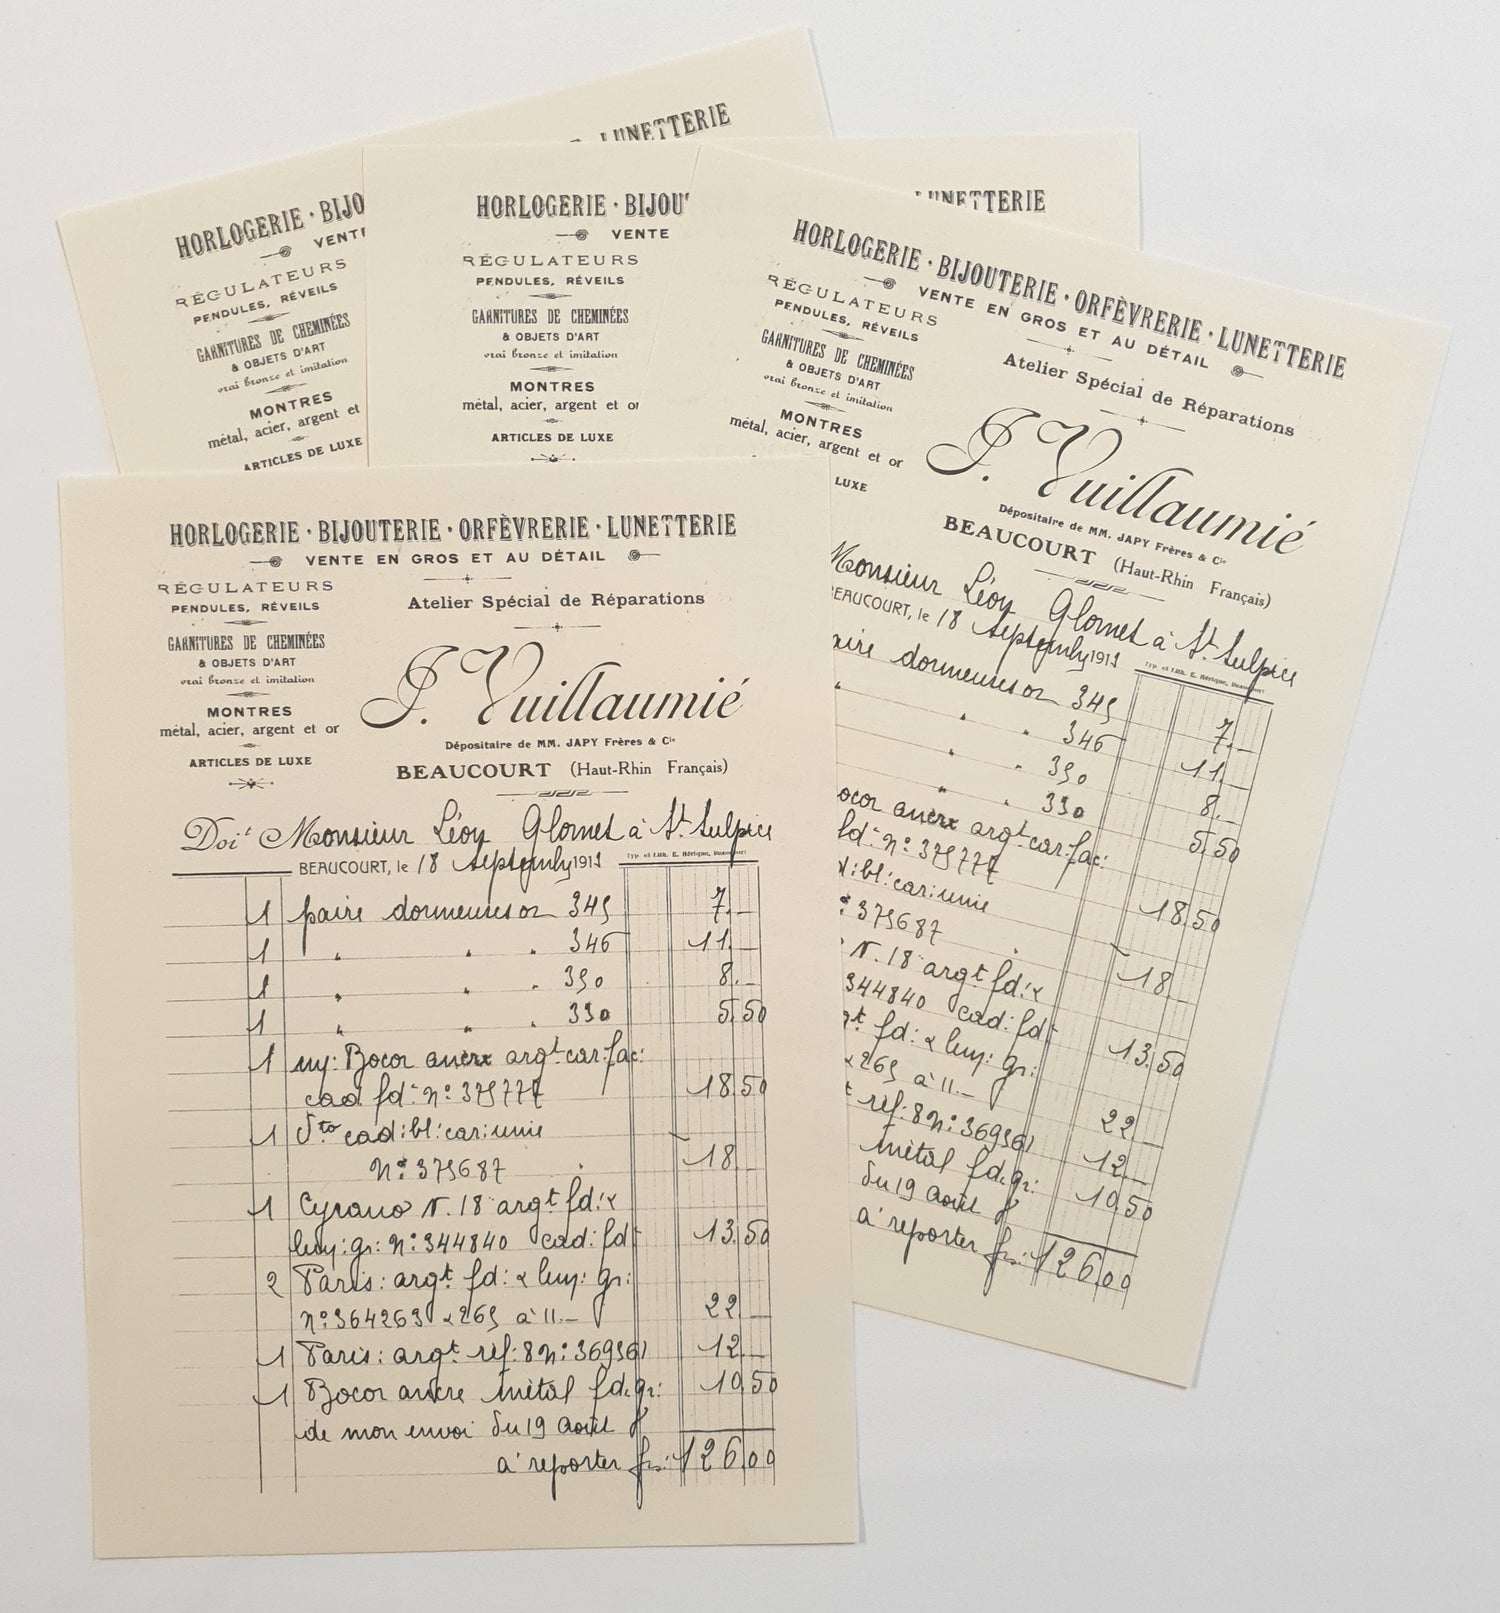 LUNETTERIE
HORLOGERIE · BIJO
VENT
RÉGULATEURS
PENDULES, RÉVEILS
GARNITURES DE CHEMINÉES
& OBJETS D'ART
vrai bronze et imitation
MONTRES
métal, acier, argent et
ARTICLES DE LUXE
HORLOGERIE · BIJOU
VENTE
RÉGULATEURS
PENDULES, RÉVEILS
GARNITURES DE CHEMINÉES
& OBJETS D'ART
vrai bronze et imitation
MONTRES
métal, acier, argent et or
ARTICLES DE LUXE
LUNETTERIE
HORLOGERIE · BIJOUTERIE · ORFÈVRERIE · LUNETTERIE
VENTE EN GROS ET AU DÉTAIL
RÉGULATEURS
PENDULES, RÉVEILS
GARNITURES DE CHEMINÉES
& OBJETS D'ART
vrai bronze et imitation
MONTRES
métal, acier, argent et or
LUXE
Atelier Spécial de Réparations
J. Vuillaumié
Dépositaire de MM. JAPY Frères & Cie
BEAUCOURT (Haut-Rhin Français)
Monsieur Léon Glornet à St. Sulpice
BEAUCOURT, le 18 1911
Typ. et Lith. E. Hérique,
aire dormeuses or 345 7.—
" " " 346 11.
" " 350 8.—
" " 330 5.50
ocor ancre argt. car: fac:
fd: No: 375777 18.50
d: bl: car: unie
375687 18
N. 18 argt fd: &
344840 cad: fd: 13.50
gt. fd: & luy: gr:
& 265 à 11.— 22
réf: 8 No: 369361 12
métal fd. gr: 10.50
du 19 Août
à reporter frs: 126.00
HORLOGERIE · BIJOUTERIE · ORFÈVRERIE · LUNETTERIE
VENTE EN GROS ET AU DÉTAIL
RÉGULATEURS
PENDULES, RÉVEILS
GARNITURES DE CHEMINÉES
& OBJETS D'ART
vrai bronze et imitation
MONTRES
métal, acier, argent et or
ARTICLES DE LUXE
Atelier Spécial de Réparations
J. Vuillaumié
Dépositaire de MM. JAPY Frères & Cie
BEAUCOURT (Haut-Rhin Français)
Doit Monsieur Léon Glornet à St. Sulpice
BEAUCOURT, le 18 1911
Typ. et Lith. E. Hérique,
1 paire dormeuses or 345 7.—
1 " " " 346 11.—
1 " " " 350 8.—
1 " " " 330 5.50
1 Bocor ancre argt. car: fac:
cad fd: No: 375777 18.50
1 dto cad: bl: car: unie
No: 375687 18
1 Cyrano N. 18 argt fd: &
luy: gr: No: 344840 cad: fd: 13.50
2 Paris: argt. fd: & luy: gr:
No: 364263 & 265 à 11.— 22.—
1 Paris: argt. réf: 8 No: 369361 12.—
1 Bocor ancre métal fd. gr: 10.50
de mon envoi du 19 Août
à reporter frs: 126.00